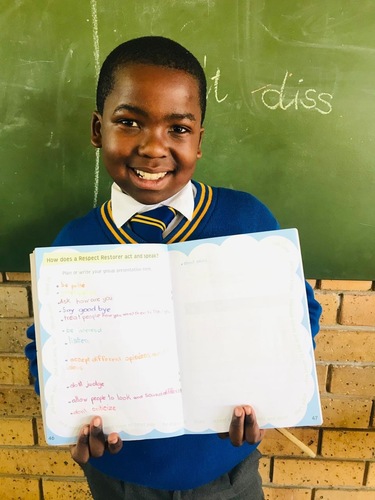 diss
How does a Respect Restorer act and speak?
Plan or write your group presentation here.
be polite
Ask how are you
Say good bye
treat people how you want to be treated
be
listen
accept different opinions
don't judge
allow people to look and sound different
not criticise
46
47